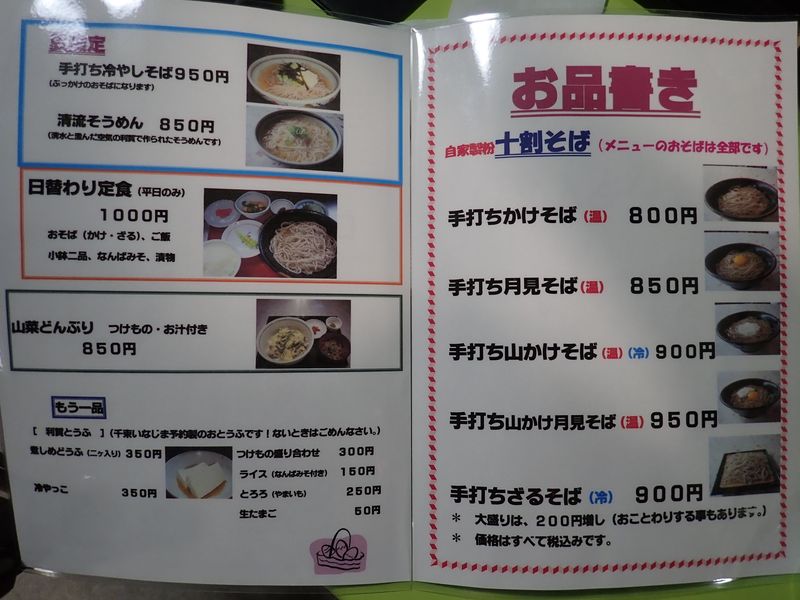 定
手打ち冷やしそば950円
(ぶっかけのおそばになります)
清流そうめん 850円
(清水と澄んだ空気の利賀で作られたそうめんです)
日替わり定食(平日のみ)
1000円
おそば(かけ・ざる)、ご飯
小鉢二品、なんばみそ、漬物
山菜どんぶり つけもの・お汁付き
850円
もう一品
[ 利賀とうふ ](千束いなじま予約製のおとうふです!ないときはごめんなさい。)
煮しめどうふ(二ヶ入り)350円
冷やっこ 350円
つけもの盛り合わせ 300円
ライス(なんばみそ付き) 150円
とろろ(やまいも) 250円
生たまご 50円
お品書き
自家製粉十割そば(メニューのおそばは全部です)
手打ちかけそば(温) 800円
手打ち月見そば(温) 850円
手打ち山かけそば(温)(冷)900円
手打ち山かけ月見そば(温)950円
手打ちざるそば(冷) 900円
* 大盛りは、200円増し(おことわりする事もあります。)
* 価格はすべて税込みです。